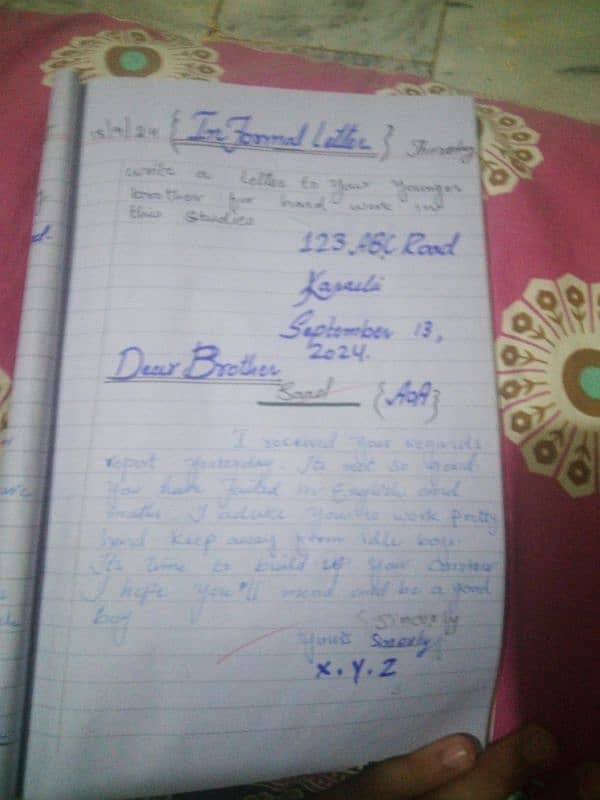 13/9/24 {InFormal Letter} Thursday
write a Letter to your younger
brother for hard work in
thier studies
123 ABC Road
Karachi
September 13,
2024.
Dear Brother
{AOA}
I received your regards
report yesterday. Its not so good
You have failed in English and
maths. I advise you to work pretty
hard keep away from idle boys.
Its time to build up your
I hope you'll mend and be a good
boy
{Sincerly
yours Sincerly}
X.Y.Z